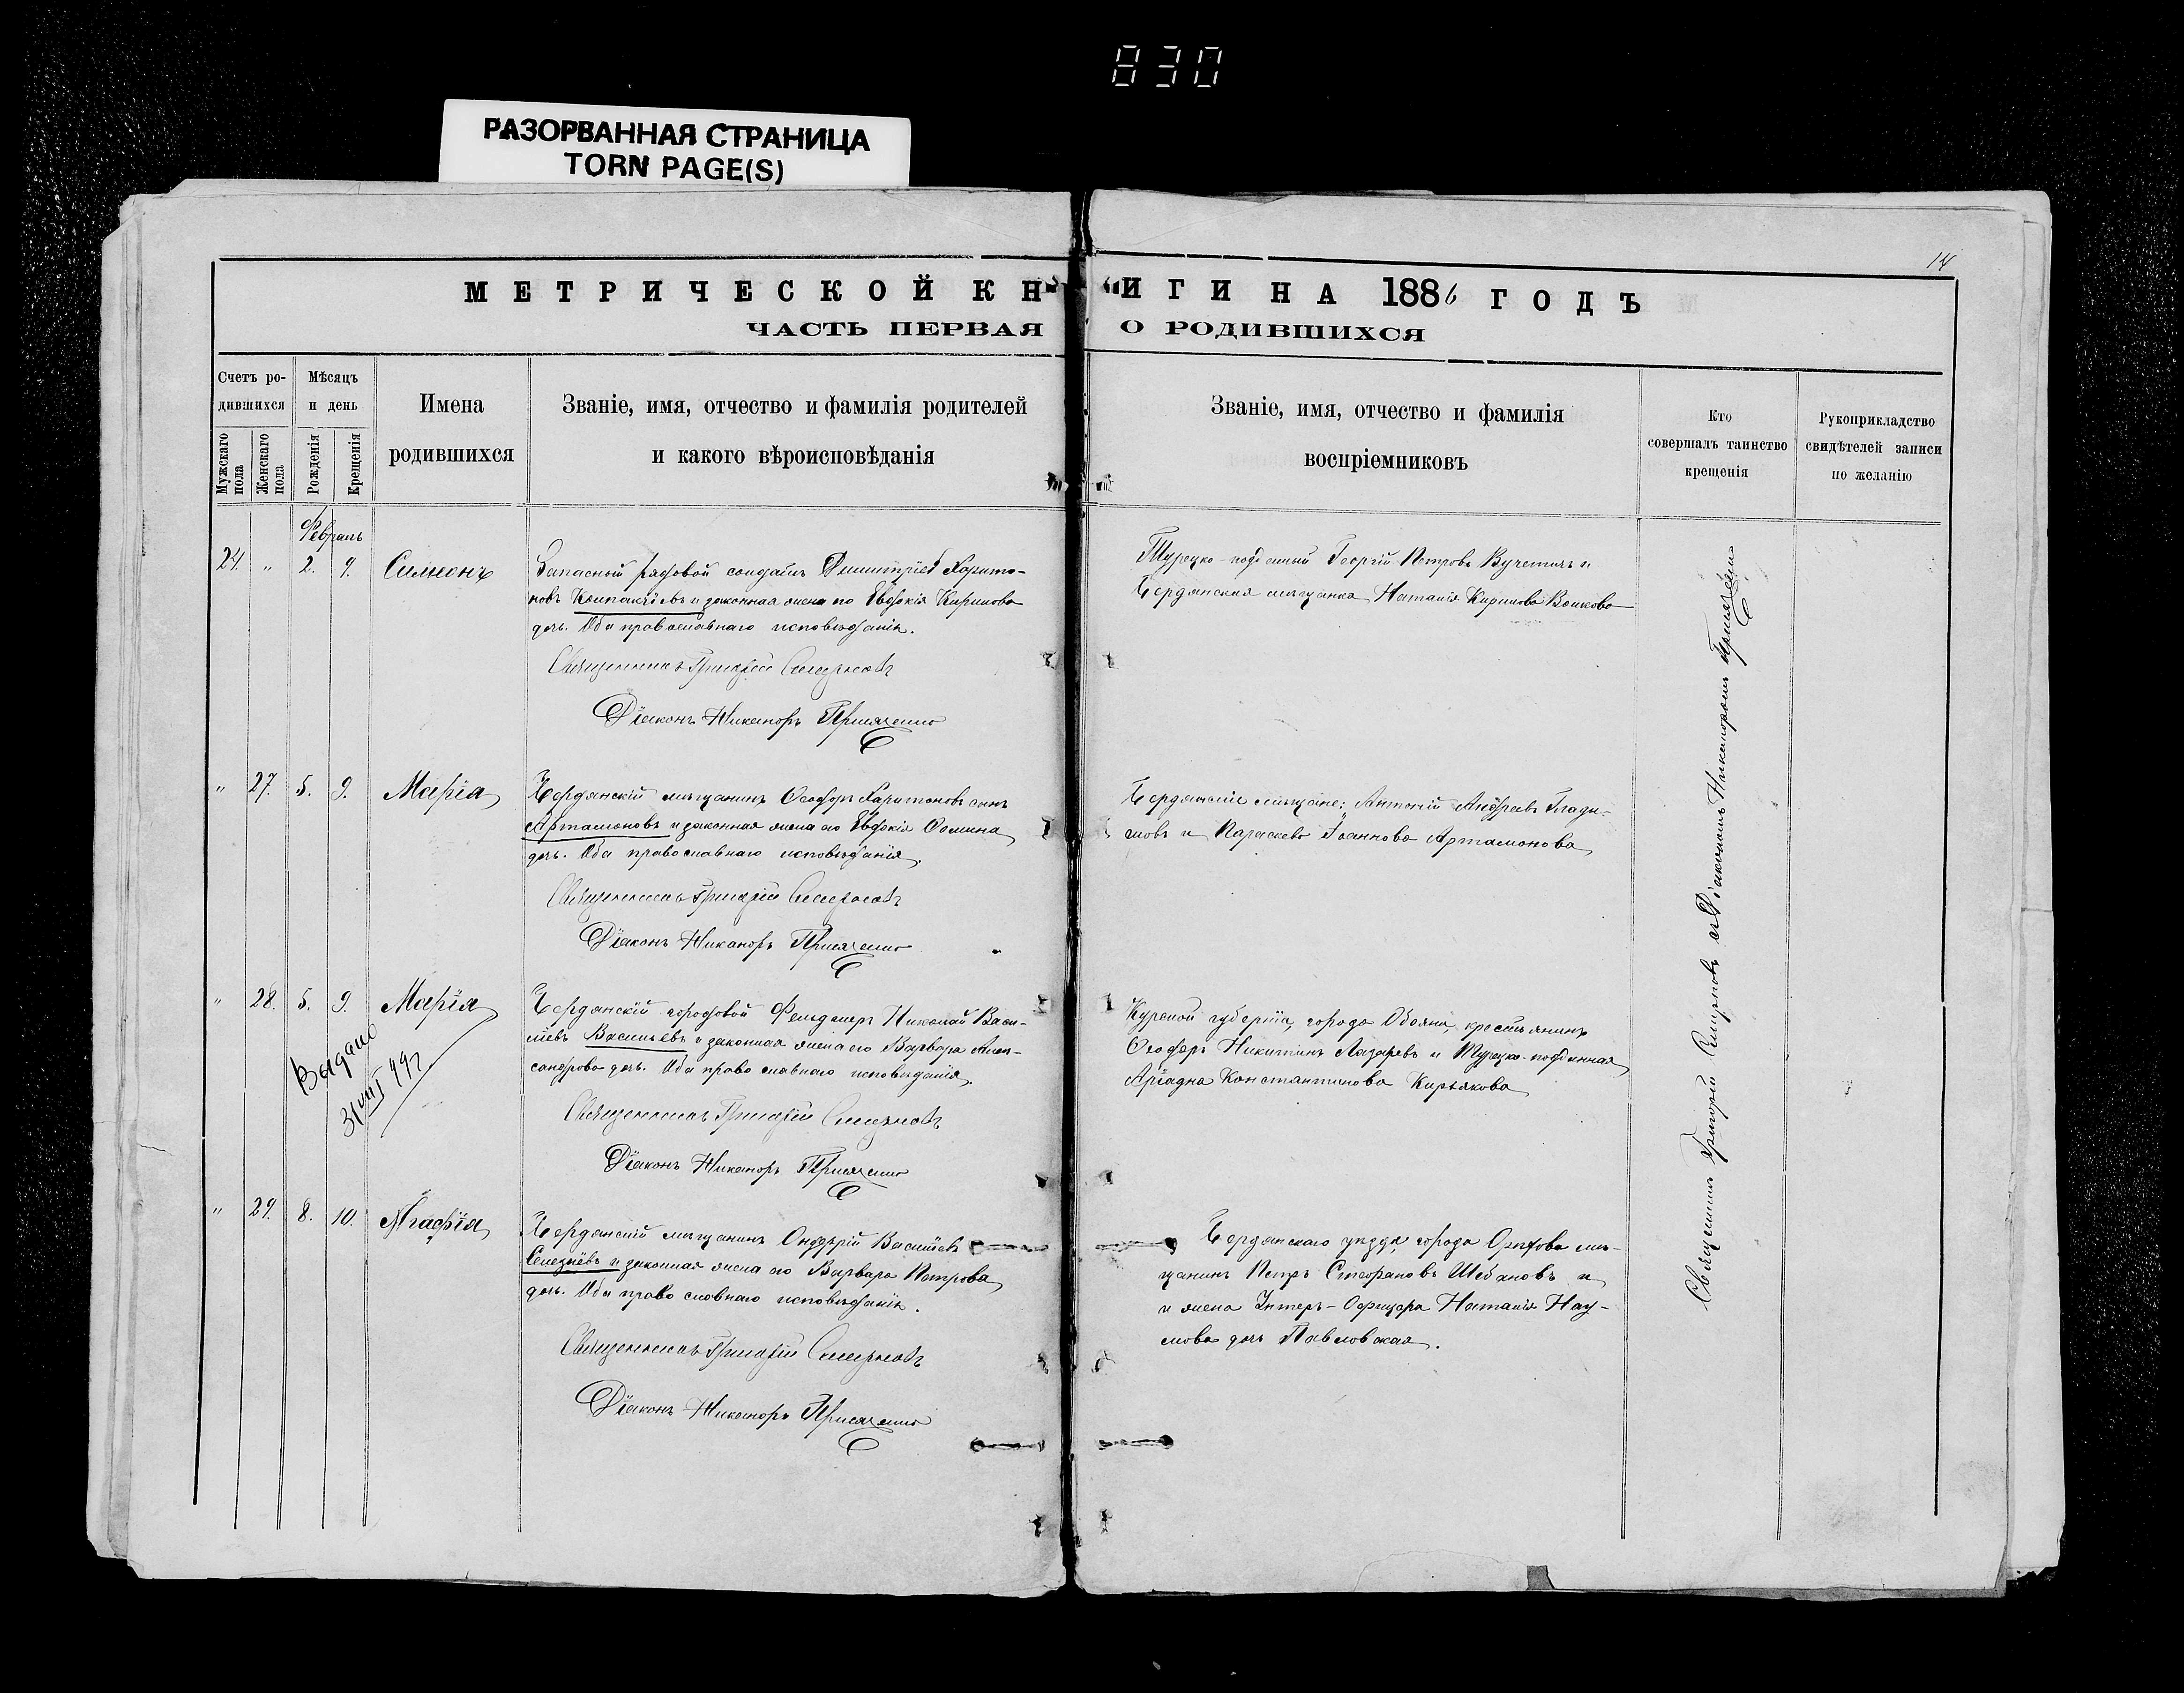 830
РАЗОРВАННАЯ СТРАНИЦА
TORN PAGE(S)
14
МЕТРИЧЕСКОЙ КН
ИГИ НА 1886 ГОДЪ
ЧАСТЬ ПЕРВАЯ
О РОДИВШИХСЯ
Счетъ ро-
дившихся
Мужскаго пола
Женскаго пола
Мѣсяцъ
и день
Рожденія
Крещенія
Имена
родившихся
Званіе, имя, отчество и фамилія родителей
и какого вѣроисповѣданія
Званіе, имя, отчество и фамилія
воспріемниковъ
Кто
совершалъ таинство
крещенія
Рукоприкладство
свидѣтелей записи
по желанію
Февраль
24. " 2. 9. Симеонъ
Запасный рядовой солдатъ Димитрій Харито-
новъ и законная жена его Евдокія Кирилова
дочь. Оба православнаго исповѣданія.
Священникъ Григорій Смирновъ
Діаконъ Никаноръ
Турецко-подданный Георгій Петровъ Вучетичъ и
Бердянская мѣщанка Наталія Кирилова Волкова
" 27. 5. 9. Марія
Бердянскій мѣщанинъ Ѳеодоръ Харитоновъ сынъ
Артамоновъ и законная жена его Евдокія Ѳомина
дочь. Оба православнаго исповѣданія.
Священникъ Григорій Смирновъ
Діаконъ Никаноръ
Бердянскіе мѣщане: Антоній Андреевъ Глады-
шовъ и Параскева Іоаннова Артамонова
" 28. 5. 9. Марія
Выдано
31 VIII 99 г
Бердянскій городовой Фельдшеръ Николай Васи-
ліевъ Васильевъ и законная жена его Варвара Алек-
сандрова дочь. Оба православнаго исповѣданія.
Священникъ Григорій Смирновъ
Діаконъ Никаноръ
Курской губерніи, города Обояни, крестьянинъ
Ѳеодоръ Никитинъ Лазаревъ и Турецко-подданная
Аріадна Константинова Кирьякова
" 29. 8. 10. Агафія
Бердянскій мѣщанинъ Василіевъ
Селезнёвъ и законная жена его Варвара Петрова
дочь. Оба православнаго исповѣданія.
Священникъ Григорій Смирновъ
Діаконъ Никаноръ
Бердянскаго уѣзда, города Орѣхова мѣ-
щанинъ Петръ Стефановъ Шебановъ и
и жена Унтеръ-Офицера Наталія Нау-
мова дочь Павловская.
Священникъ Григорій Смирновъ съ Діакономъ Никаноромъ